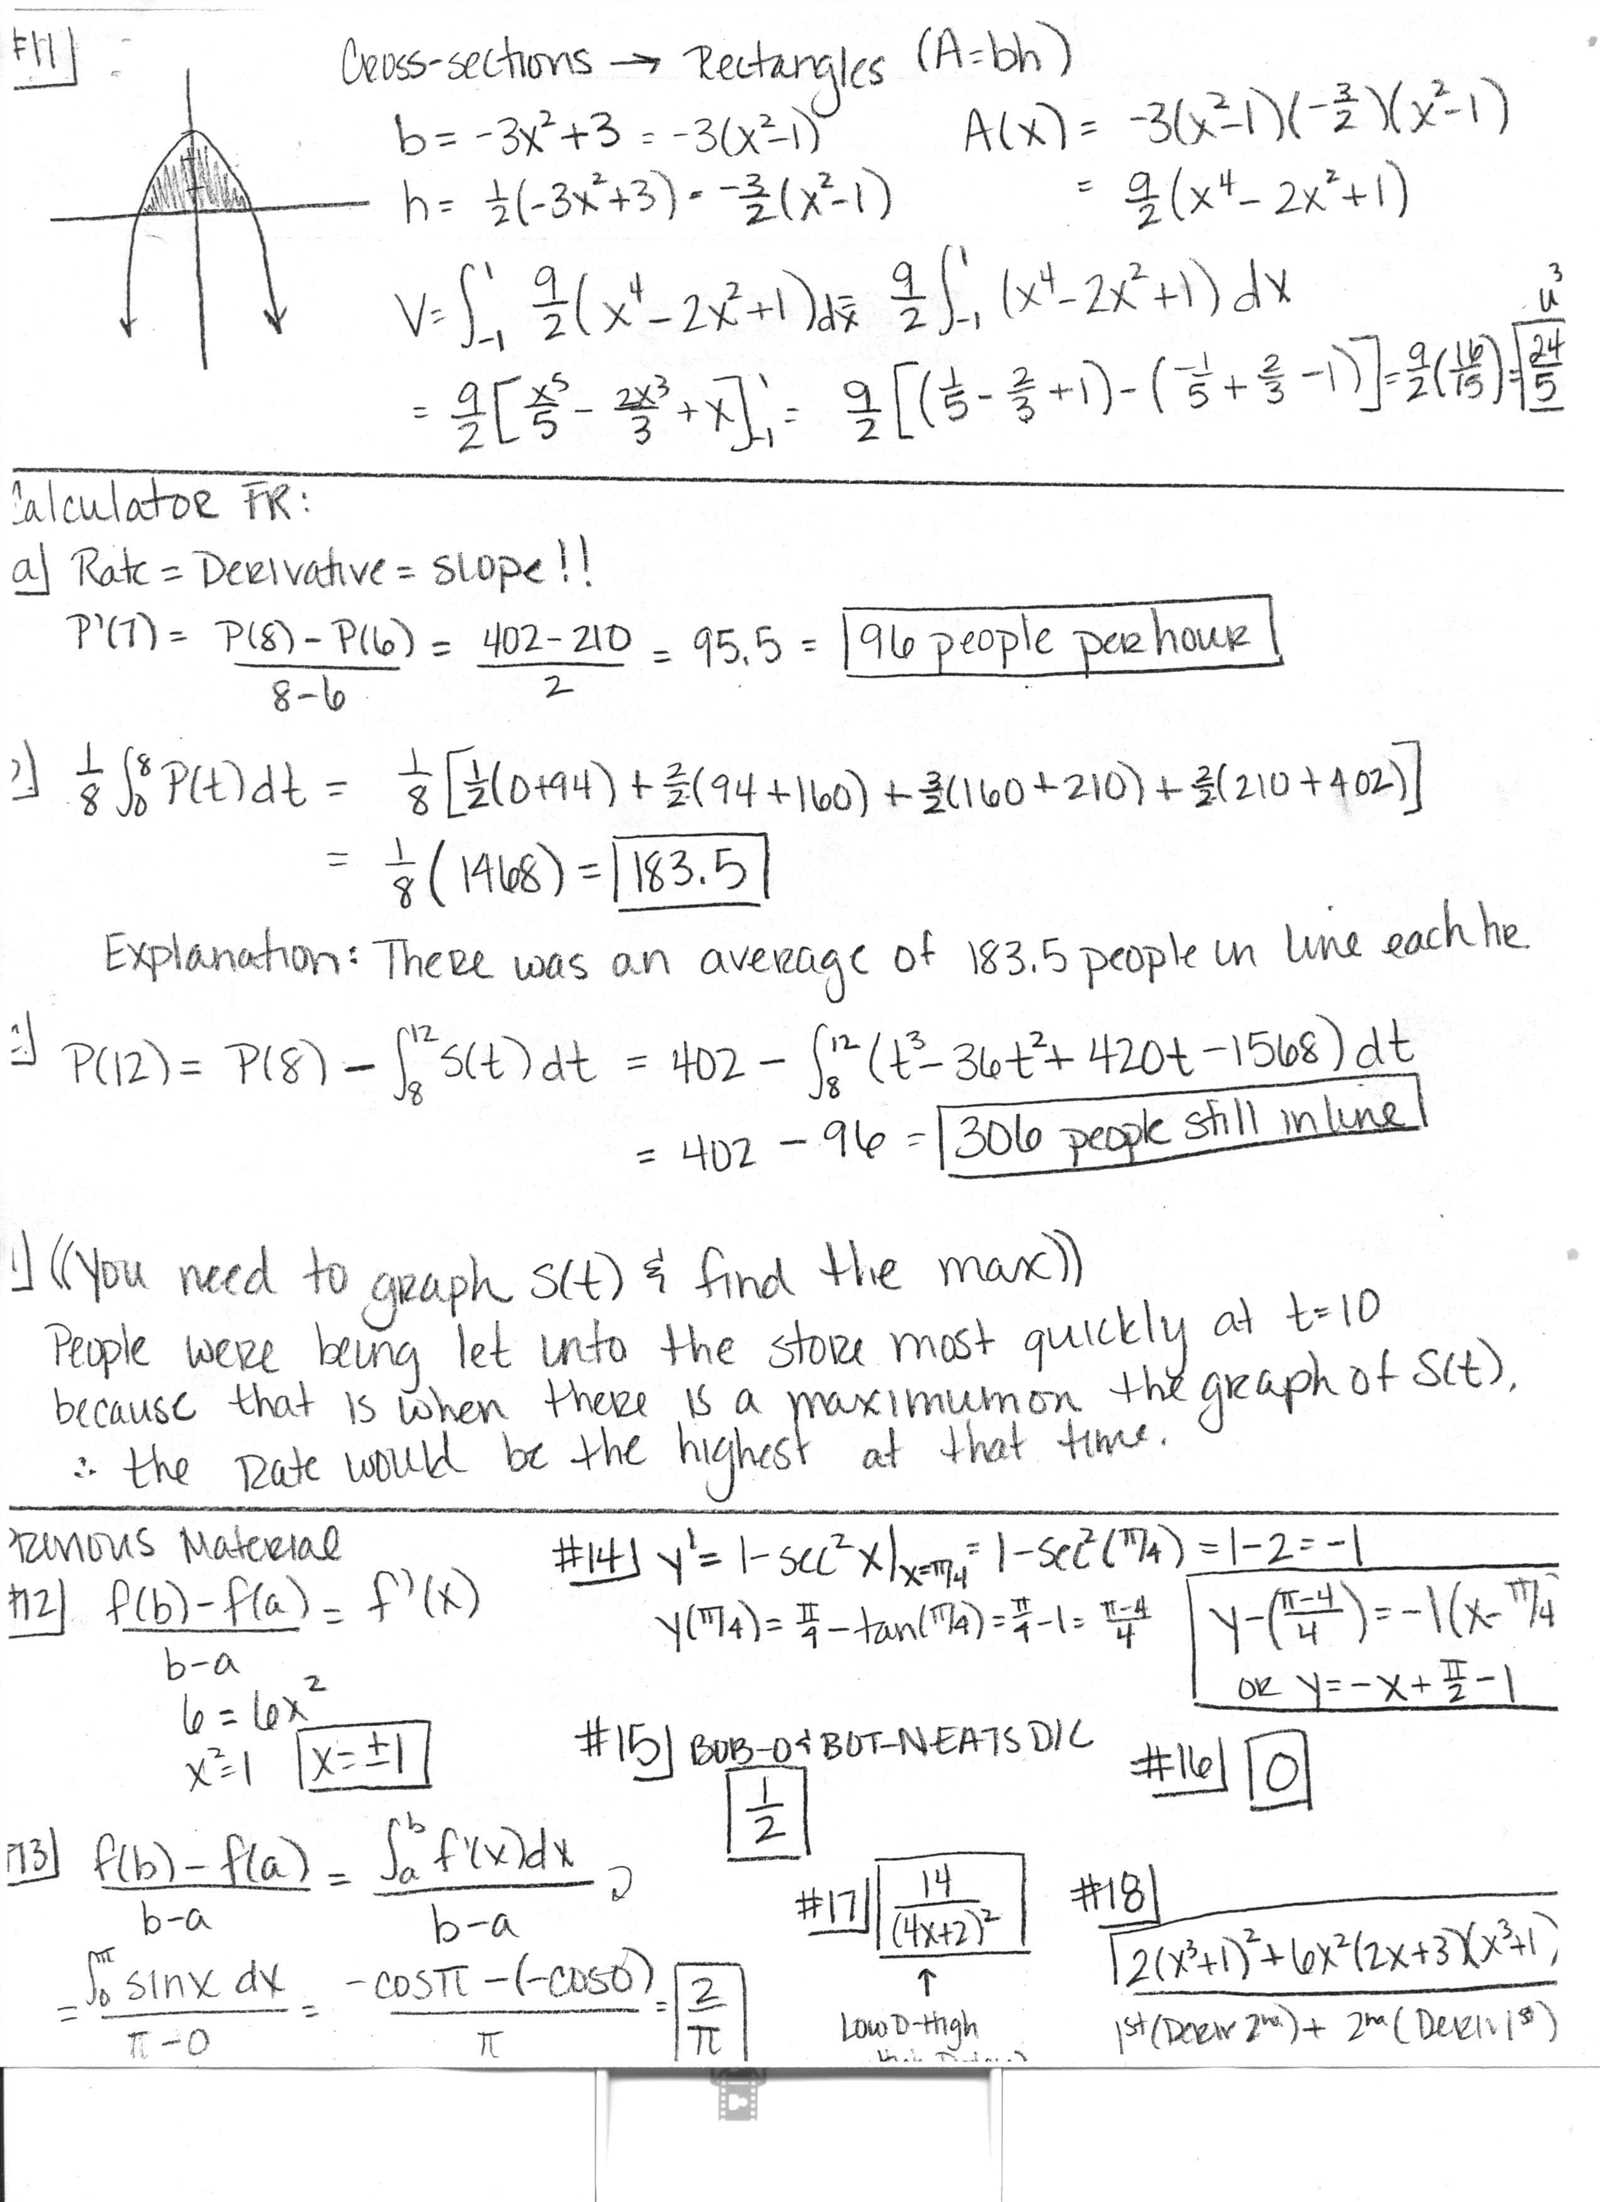 #11
Cross-sections → Rectangles (A=bh)
b = -3x²+3 = -3(x²-1)
A(x) = -3(x²-1)(-3/2)(x²-1)
h = 1/2(-3x²+3) = -3/2(x²-1)
= 9/2(x⁴-2x²+1)
V = ∫₋₁¹ 9/2(x⁴-2x²+1)dx = 9/2∫₋₁¹ (x⁴-2x²+1)dx
= 9/2[x⁵/5 - 2x³/3 + x]₋₁¹ = 9/2[(1/5 - 2/3 + 1) - (-1/5 + 2/3 - 1)] = 9/2(16/15) = 24/5 u³
Calculator FR:
a) Rate = Derivative = slope!!
P'(7) = P(8)-P(6)/8-6 = 402-210/2 = 95.5 = 96 people per hour
1/8 ∫₀⁸ P(t)dt = 1/8[1/2(0+94) + 2/2(94+160) + 3/2(160+210) + 2/2(210+402)]
= 1/8(1468) = 183.5
Explanation: There was an average of 183.5 people in line each hr.
P(12) = P(8) - ∫₈¹² S(t)dt = 402 - ∫₈¹² (t³-36t²+420t-1568)dt
= 402 - 96 = 306 people still in line
((You need to graph S(t) & find the max))
People were being let into the store most quickly at t=10
because that is when there is a maximum on the graph of S(t).
∴ the rate would be the highest at that time.
Material
#12
f(b)-f(a)/b-a = f'(x)
6 = 6x²
x²=1 x=±1
#13
f(b)-f(a)/b-a = ∫ₐᵇ f'(x)dx/b-a
= ∫₀^π sinx dx/π-0 = -cosπ-(-cos0)/π = 2/π
#14
y' = 1-sec²x|x=π/4 = 1-sec²(π/4) = 1-2 = -1
y(π/4) = π/4 - tan(π/4) = π/4 - 1 = π-4/4
y-(π-4/4) = -1(x-π/4
OR y = -x + π/2 - 1
#15 BOB-O & BOT-N EATS DIC
1/2
#16 0
#17 14/(4x+2)²
↑
Low D-High
#18
2(x³+1)²+6x²(2x+3)(x³+1)
1st(Deriv 2nd) + 2nd(Deriv 1st)